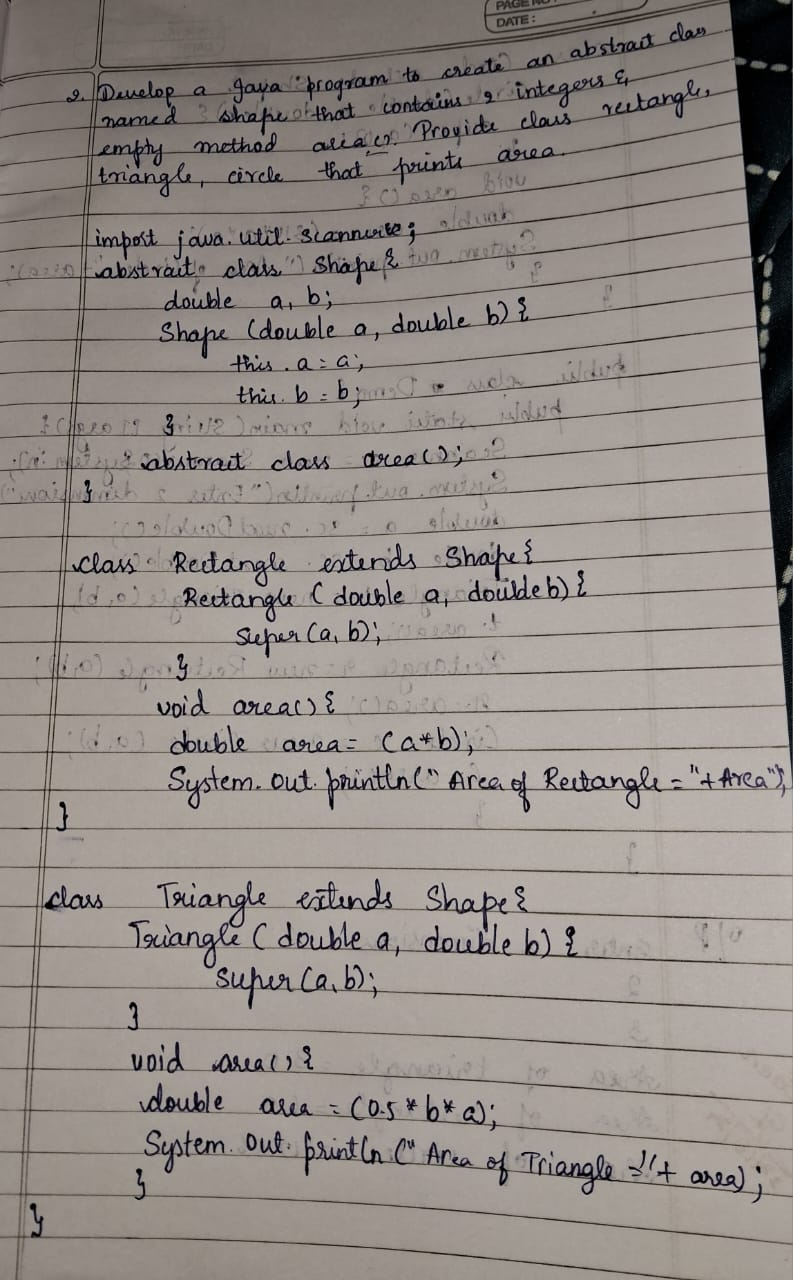 PAGE NO
DATE:
2. Develop a java program to create an abstract class
named shape that contains 2 integers &
empty method area(). Provide class rectangle,
triangle, circle that prints area.
import java.util.Scannerise;
abstract class Shape {
double a, b;
Shape (double a, double b) {
this.a = a;
this.b = b;
}
abstract class area();
}
class Rectangle extends Shape {
Rectangle (double a, double b) {
super(a, b);
}
void area() {
double area = (a*b);
System.out.println(" Area of Rectangle = "+ Area");
}
class Triangle extends Shape {
Triangle (double a, double b) {
super(a, b);
}
void area() {
double area = (0.5 * b * a);
System.out.println (" Area of Triangle = "+ area);
}
}